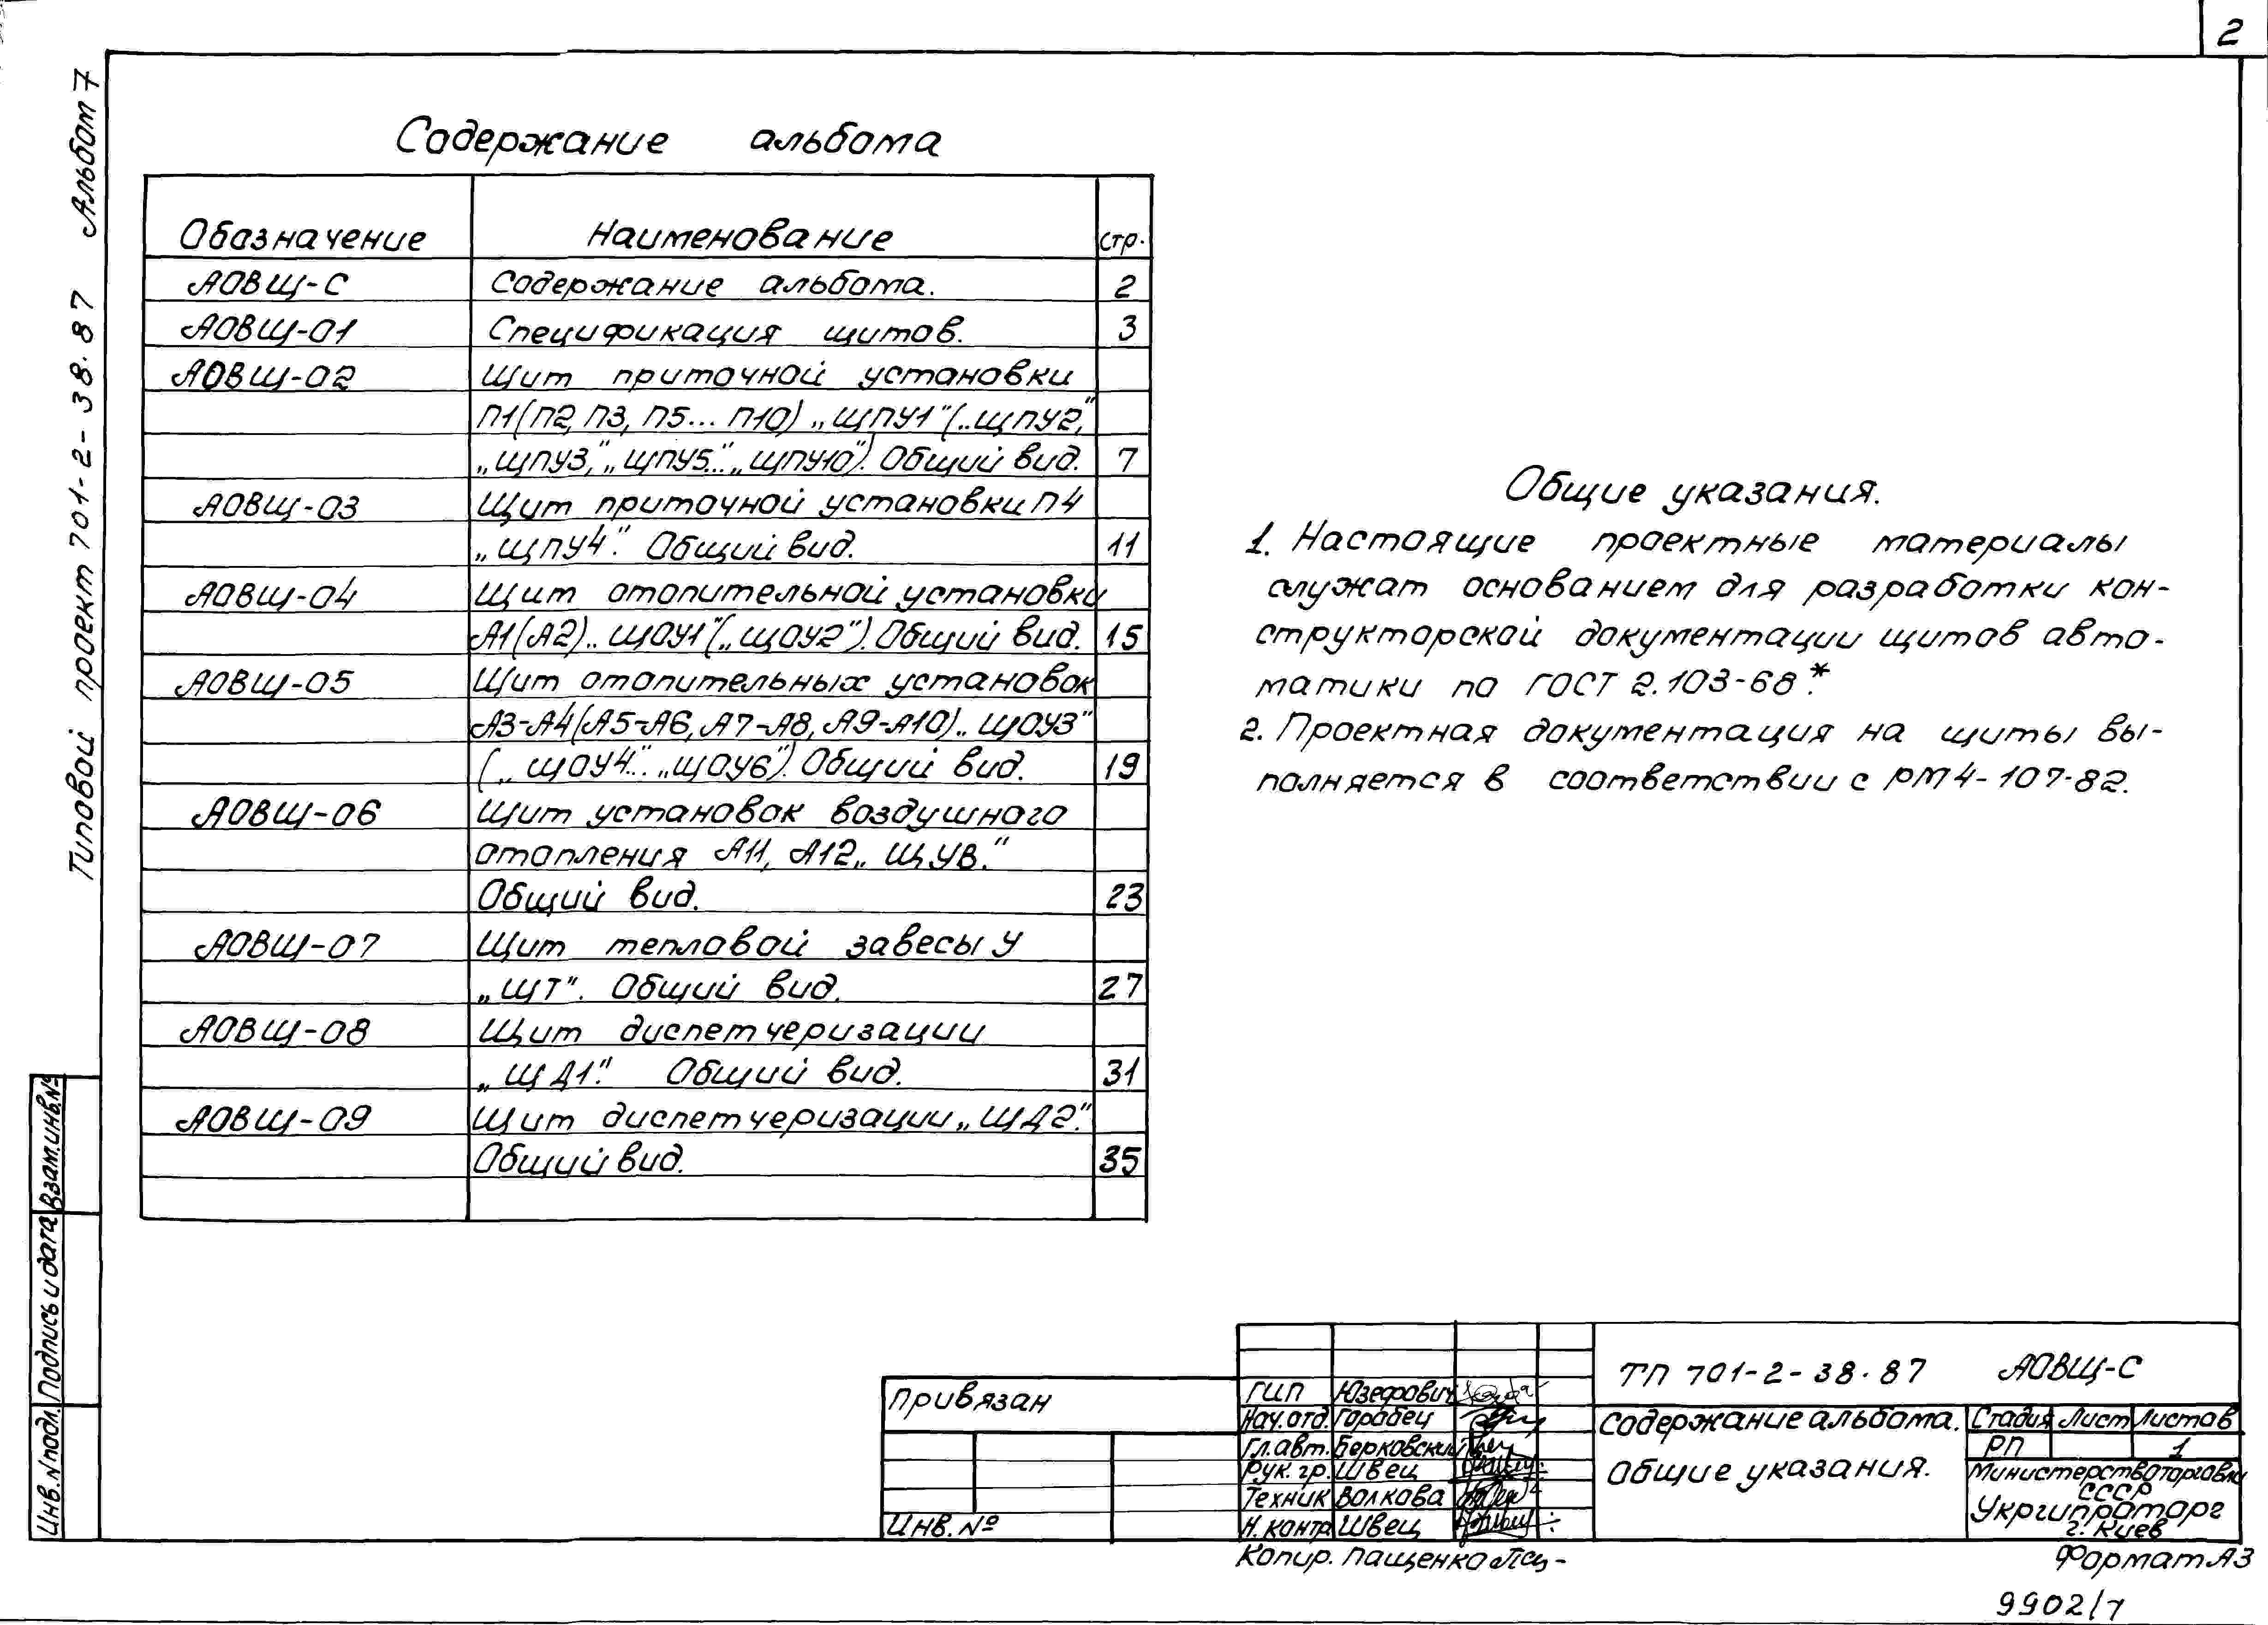 2
Типовой проект 701-2-38.87 Альбом 7
Содержание альбома
Обозначение Наименование стр.
АОВЩ-С Содержание альбома. 2
АОВЩ-01 Спецификация щитов. 3
АОВЩ-02 Щит приточной установки
П1(П2, П3, П5...П10) „ЩПУ1" („ЩПУ2",
„ЩПУ3", „ЩПУ5"..„ЩПУ10"). Общий вид. 7
АОВЩ-03 Щит приточной установки П4
„ЩПУ4". Общий вид. 11
АОВЩ-04 Щит отопительной установки
А1(А2) „ЩОУ1" („ЩОУ2"). Общий вид. 15
АОВЩ-05 Щит отопительных установок
А3-А4(А5-А6, А7-А8, А9-А10) „ЩОУ3"
(„ЩОУ4"...„ЩОУ6"). Общий вид. 19
АОВЩ-06 Щит установок воздушного
отопления А11, А12 „ЩУВ."
Общий вид. 23
АОВЩ-07 Щит тепловой завесы У
„ЩТ". Общий вид. 27
АОВЩ-08 Щит диспетчеризации
„ЩД1". Общий вид. 31
АОВЩ-09 Щит диспетчеризации „ЩД2".
Общий вид. 35
Общие указания.
1. Настоящие проектные материалы
служат основанием для разработки кон-
структорской документации щитов авто-
матики по ГОСТ 2.103-68*.
2. Проектная документация на щиты вы-
полняется в соответствии с РМ4-107-82.
Инв.N подл. Подпись и дата Взам.инв.№
Привязан
Инв. №
ГИП Юзефович
Нач.отд. Горобец
Гл.авт. Берковский
Рук. гр. Швец
Техник Волкова
Н. контр Швец
ТП 701-2-38.87 АОВЩ-С
Содержание альбома.
Общие указания.
Стадия Лист Листов
РП 1
Министерство торговли
СССР
Укргипроторг
г. Киев
Копир. Пащенко
Формат А3
9902/7